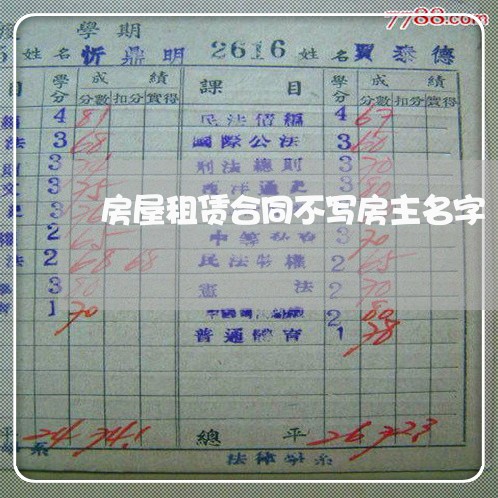 7788.com
學期
姓名 忻鼎明 2616 姓名 賈泰德
目 學分 成績 分數 扣分 實得 課目 學分 成績 分數 扣分 實得
4 81 民法債編 4 67
法 3 68 國際公法 3 60
3 刑法總則 3 70
3 75 3 80
房屋租赁合同不写房主名字
2 65 3 70
法 2 68 68 民法物權 2 65
3 80 憲法 2 70
1 70 2 80
普通體育 1 78
平 24 74.1 總平 26 72.3
系 法律學系